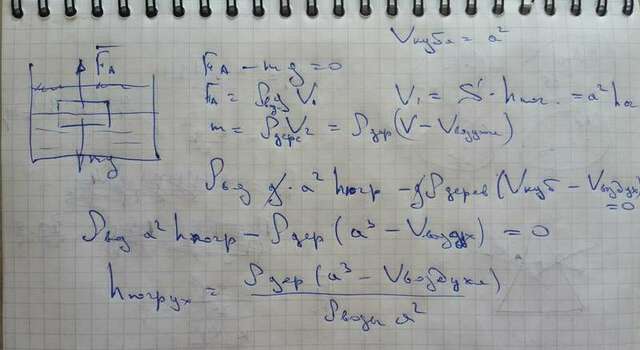 Vкуба = a²
F_A
mg
F_A - mg = 0
F_A = ρвод g V₁    V₁ = S · hпог. = a² hпог
m = ρдерев V₂ = ρдер (V - Vвоздуха)
ρвод g · a² hпогр - g ρдерев (Vкуб - Vвоздух) = 0
ρвод a² hпогр - ρдер (a³ - Vвоздух) = 0
hпогруж = ρдер (a³ - Vвоздуха)
ρводы a²